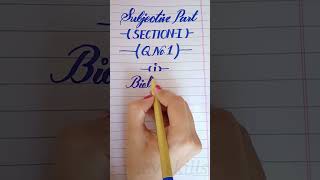 Subjective Part
(SECTION-I)
(Q.No 1)
(i)
Biol